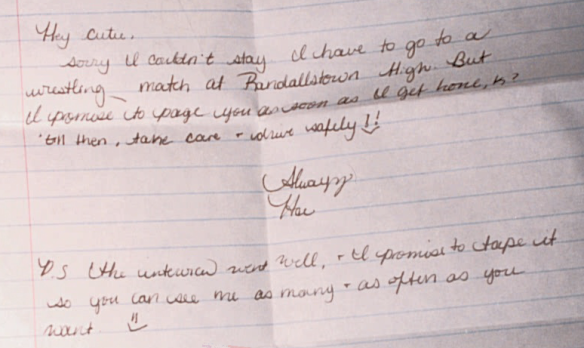 Hey cutie.
sorry I couldn't stay I have to go to a
wrestling match at Randallstown High. But
I promise to page you as soon as I get home, k?
'till then, take care + drive safely !!
Always
P.S (the interview) went well, + I promise to tape it
so you can see me as many + as often as you
want